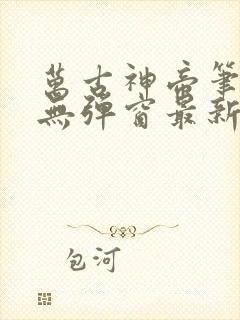 萬古神帝筆
無彈窗最新
包河